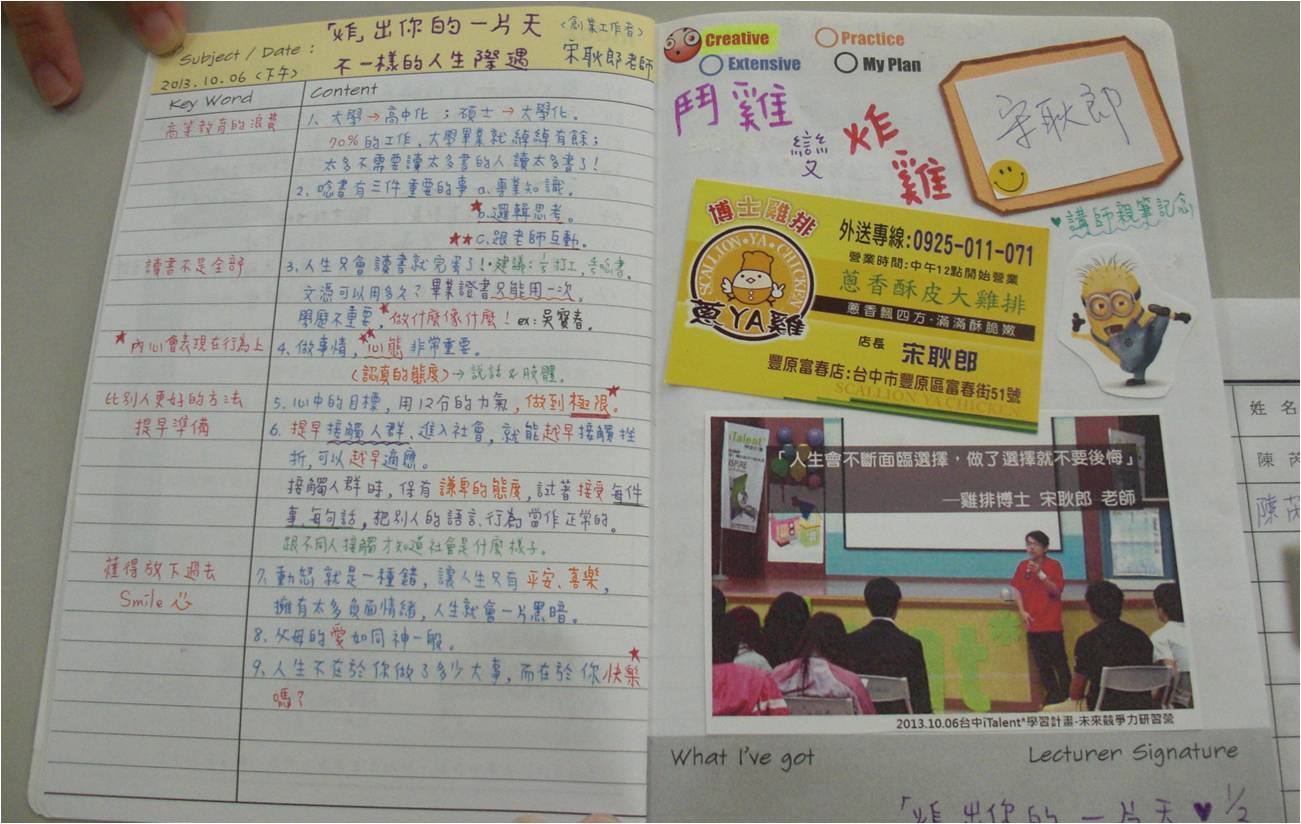 Subject / Date :
「炸」出你的一片天
〈創業工作者〉
2013.10.06（下午）
不一樣的人生際遇
宋耿郎老師
Key Word
Content
高等教育的浪費
1. 大學→高中化 ；碩士→大學化。
70%的工作，大學畢業就綽綽有餘；
太多不需要讀太多書的人讀太多書了！
2. 唸書有三件重要的事 a.專業知識。
★b.邏輯思考。
★★c.跟老師互動。
讀書不是全部
3. 人生只會讀書就完蛋了！•建議：½打工，½唸書。
文憑可以用多久？畢業證書只能用一次。
學歷不重要，★做什麼像什麼！ex：吳寶春。
★內心會表現在行為上
4. 做事情，★★心態非常重要。
（認真的態度）→說話&肢體。
比別人更好的方法
5. 心中的目標，用12分的力氣，做到極限★。
提早準備
6. 提早接觸人群、進入社會，就能越早接觸挫
折，可以越早適應。
接觸人群時，保有謙卑的態度，試著接受每件
事、每句話，把別人的語言、行為當作正常的。
跟不同人接觸才知道社會是什麼樣子。
懂得放下過去
7. 動怒就是一種錯，讓人生只有平安、喜樂，
Smile
擁有太多負面情緒，人生就會一片黑暗。
8. 父母的愛如同神一般。
9. 人生不在於你做了多少大事，而在於你快樂★
嗎？
Creative
Practice
Extensive
My Plan
鬥雞
變
炸
雞
宋耿郎
♥講師親筆記念
博士雞排
SCALLION•YA•CHICKEN
蔥YA雞
外送專線:0925-011-071
營業時間:中午12點開始營業
蔥香酥皮大雞排
蔥香飄四方‧滿滿酥脆嫩
店長 宋耿郎
豐原富春店:台中市豐原區富春街51號
SCALLION YA CHICKEN
iTalent
「人生會不斷面臨選擇，做了選擇就不要後悔」
—雞排博士 宋耿郎 老師
2013.10.06台中iTalent®學習計畫-未來競爭力研習營
What I've got
Lecturer Signature
「炸」出你的一片天 ♥ 1/2
姓 名
陳
陳